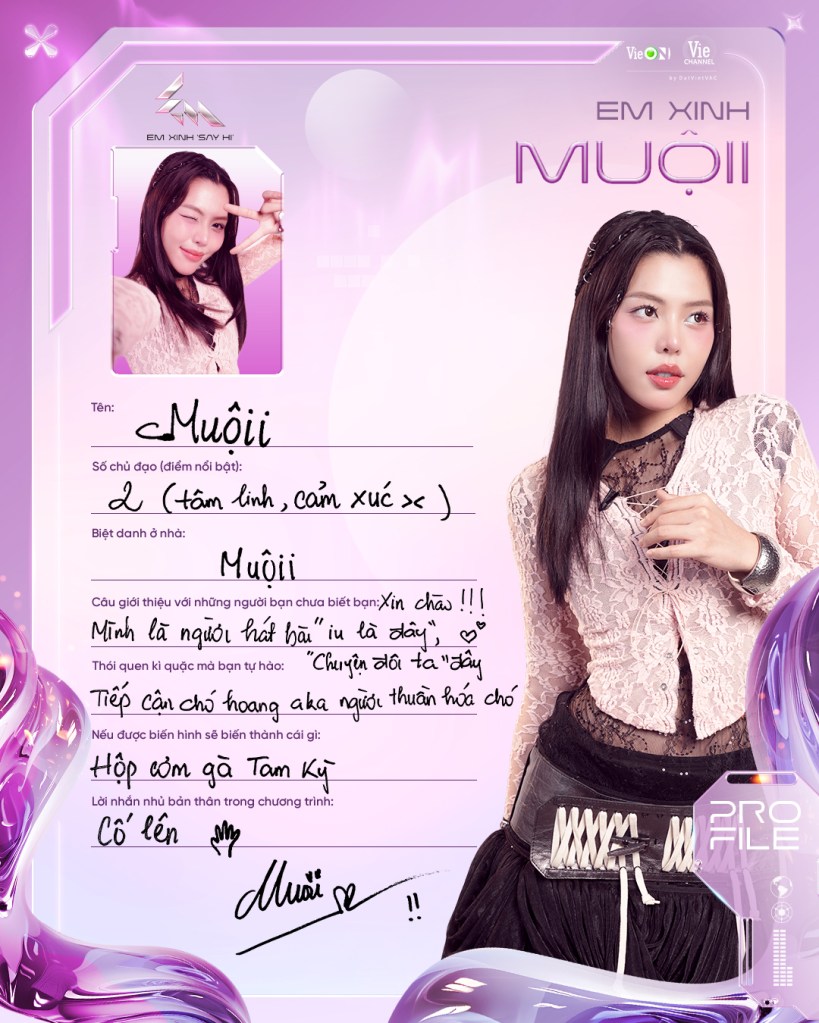 VieON
Vie
CHANNEL
by DatVietVAC
EM XINH "SAY HI"
EM XINH
MUỘII
Tên:
Muộii
Số chủ đạo (điểm nổi bật):
2 (tâm linh, cảm xúc >< )
Biệt danh ở nhà:
Muộii
Câu giới thiệu với những người bạn chưa biết bạn: Xin chào !!!
Mình là người hát bài "iu là đây",
"Chuyện đôi ta" đây
Thói quen kì quặc mà bạn tự hào:
Tiếp cận chó hoang aka người thuần hóa chó
Nếu được biến hình sẽ biến thành cái gì:
Hộp cơm gà Tam Kỳ
Lời nhắn nhủ bản thân trong chương trình:
Cố lên
Muộii
!!
PRO
FILE